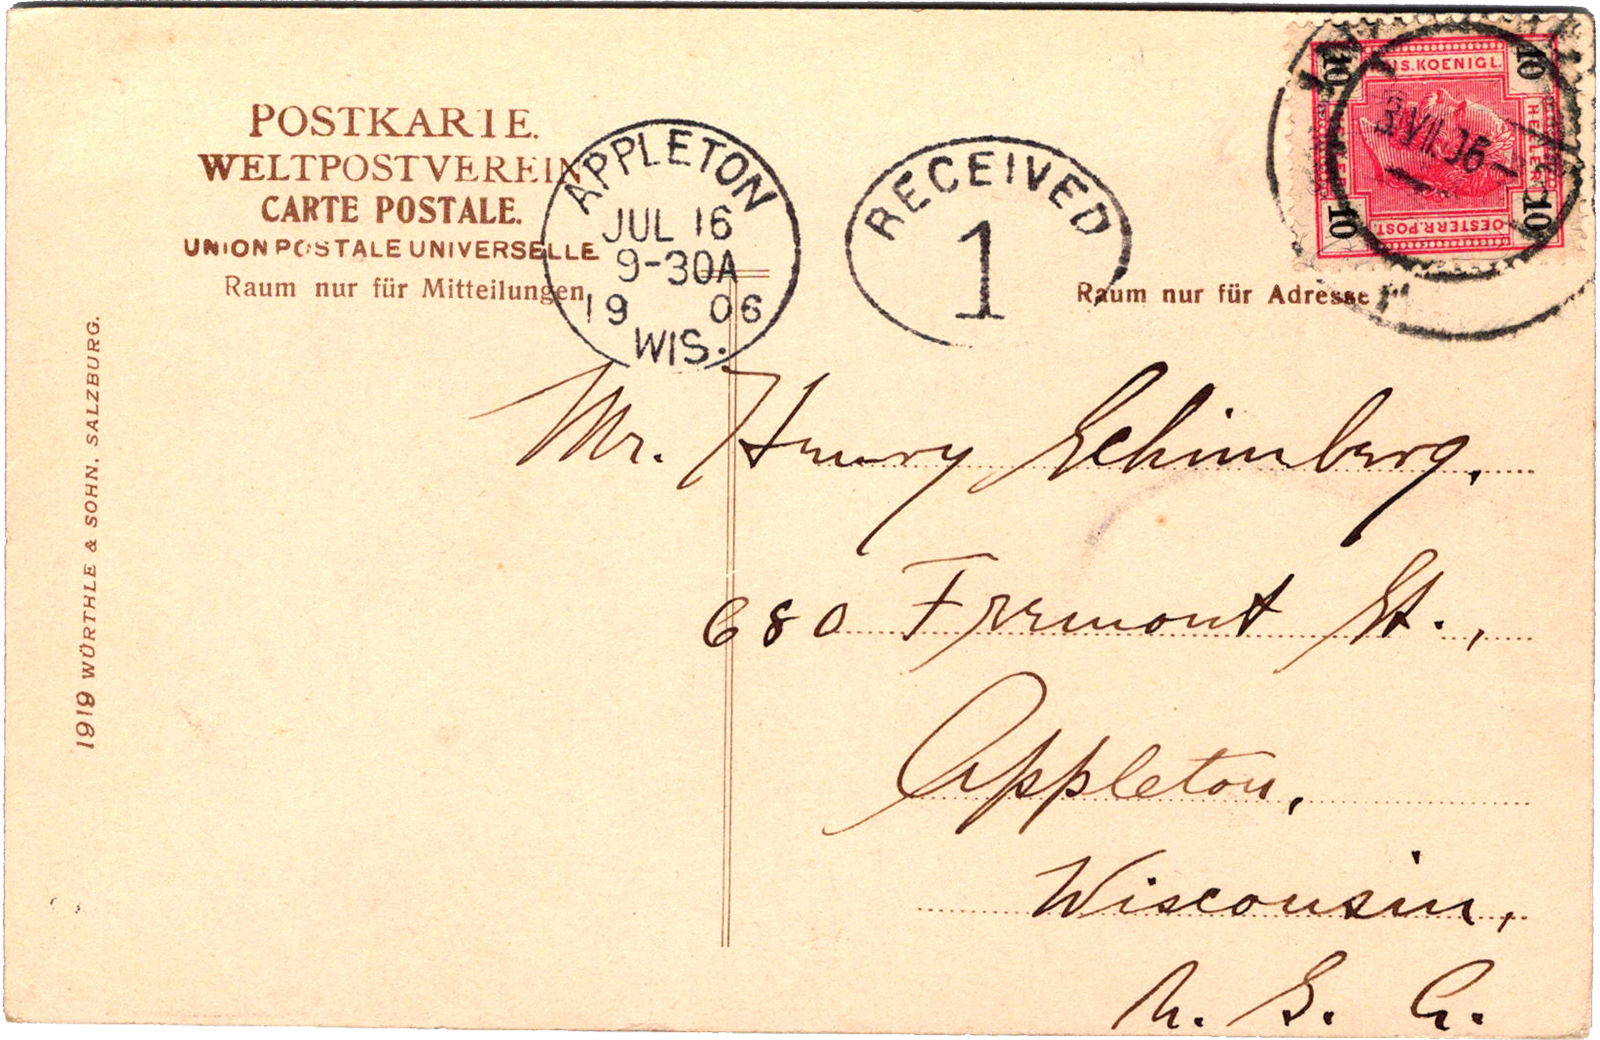 POSTKARTE.
WELTPOSTVEREIN
CARTE POSTALE.
UNION POSTALE UNIVERSELLE
Raum nur für Mitteilungen
APPLETON
JUL 16
9-30A
19 06
WIS.
RECEIVED
1
10 10
KOENIGL.
HELLER HELLER
OESTERR.POST.
10 10
3.VII.06
Raum nur für Adresse
1919 WÜRTHLE & SOHN, SALZBURG.
Mr. Henry Schimberg,
680 Fremont St.,
Appleton,
Wisconsin,
U. S. A.